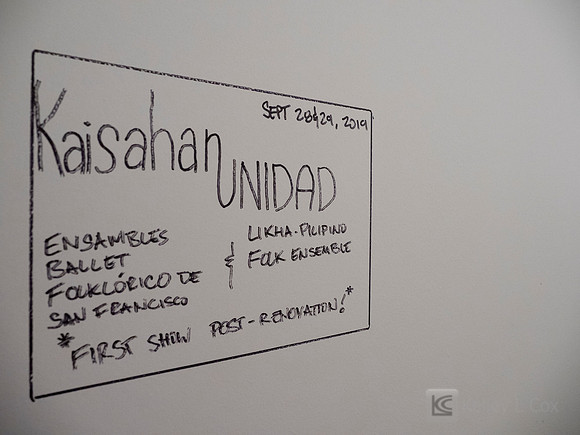 SEPT 28&29, 2019
Kaisahan
UNIDAD
ENSAMBLES
BALLET
FOLKLÓRICO DE
SAN FRANCISCO
&
LIKHA-PILIPINO
FOLK ENSEMBLE
*FIRST SHOW POST-RENOVATION!*
KC